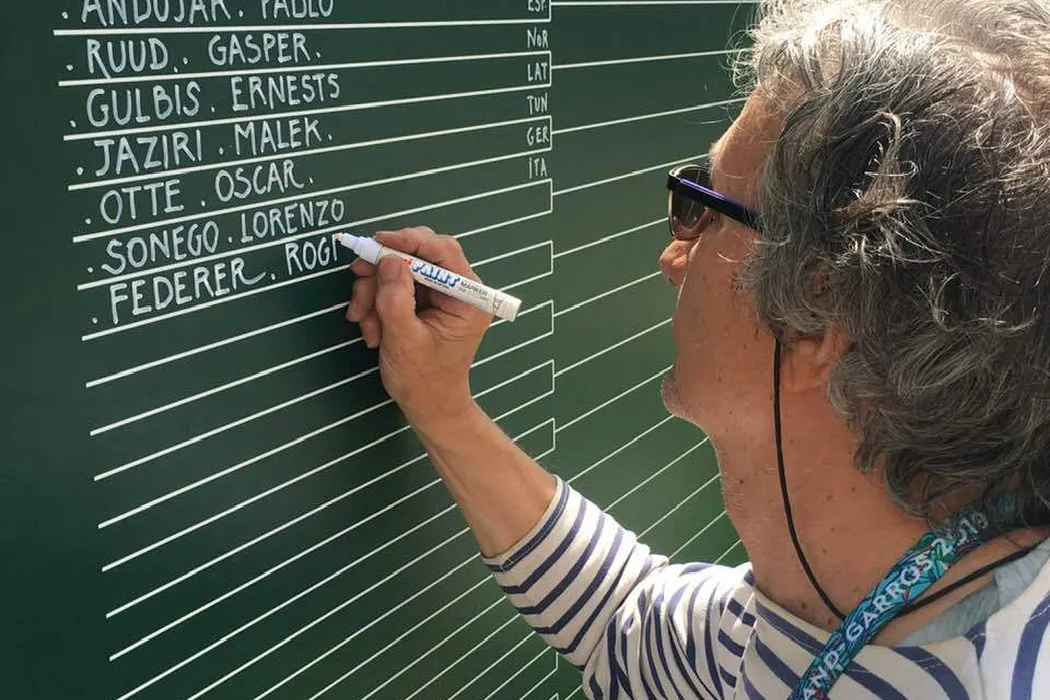 . ANDUJAR. PABLO ESP
. RUUD.. GASPER. NOR
. GULBIS. ERNESTS LAT
. JAZIRI. MALEK. TUN
. OTTE. OSCAR. GER
. SONEGO. LORENZO ITA
. FEDERER. ROG
PAINT
MARKER
AND-GARROS 2019